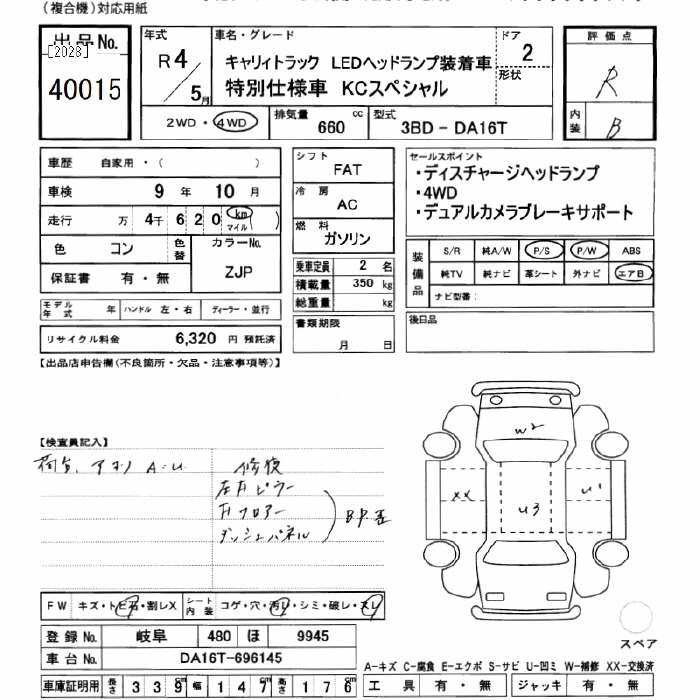 （複合機）対応用紙
出品No.
[2023]
40015
年式
R 4
5月
車名・グレード
キャリィトラック LEDヘッドランプ装着車
特別仕様車 KCスペシャル
ドア
2
形状
評価点
R
内装
B
2WD・4WD
排気量
660 cc
型式
3BD - DA16T
車歴 自家用・（ ）
車検 9 年 10 月
走行 万 4千 6 2 0 km マイル
色 コン
色替
カラーNo.
ZJP
保証書 有・無
モデル年式 年
ハンドル 左・右
ディーラー・並行
リサイクル料金 6,320 円 預託済
シフト
FAT
冷房
AC
燃料
ガソリン
乗車定員 2 名
積載量 350 kg
総重量 kg
書類期限
月 日
セールスポイント
・ディスチャージヘッドランプ
・4WD
・デュアルカメラブレーキサポート
装備品
S/R 純A/W P/S P/W ABS
純TV 純ナビ 革シート 外ナビ エアB
ナビ型番：
後日品
【出品店申告欄（不良箇所・欠品・注意事項等）】
【検査員記入】
A・U
修復
左右ピラー
右フロアー
ダッシュパネル
W2
XX
U3
U1
FW キズ・トビ石・割レX
シート内装 コゲ・穴・汚レ・シミ・破レ・スレ
登録No. 岐阜 480 ほ 9945
車台No. DA16T-696145
車庫証明用 長さ 339cm 幅 147cm 高さ 176cm
スペア
A-キズ C-腐食 E-エクボ S-サビ U-凹ミ W-補修 XX-交換済
工具 有・無 ジャッキ 有・無